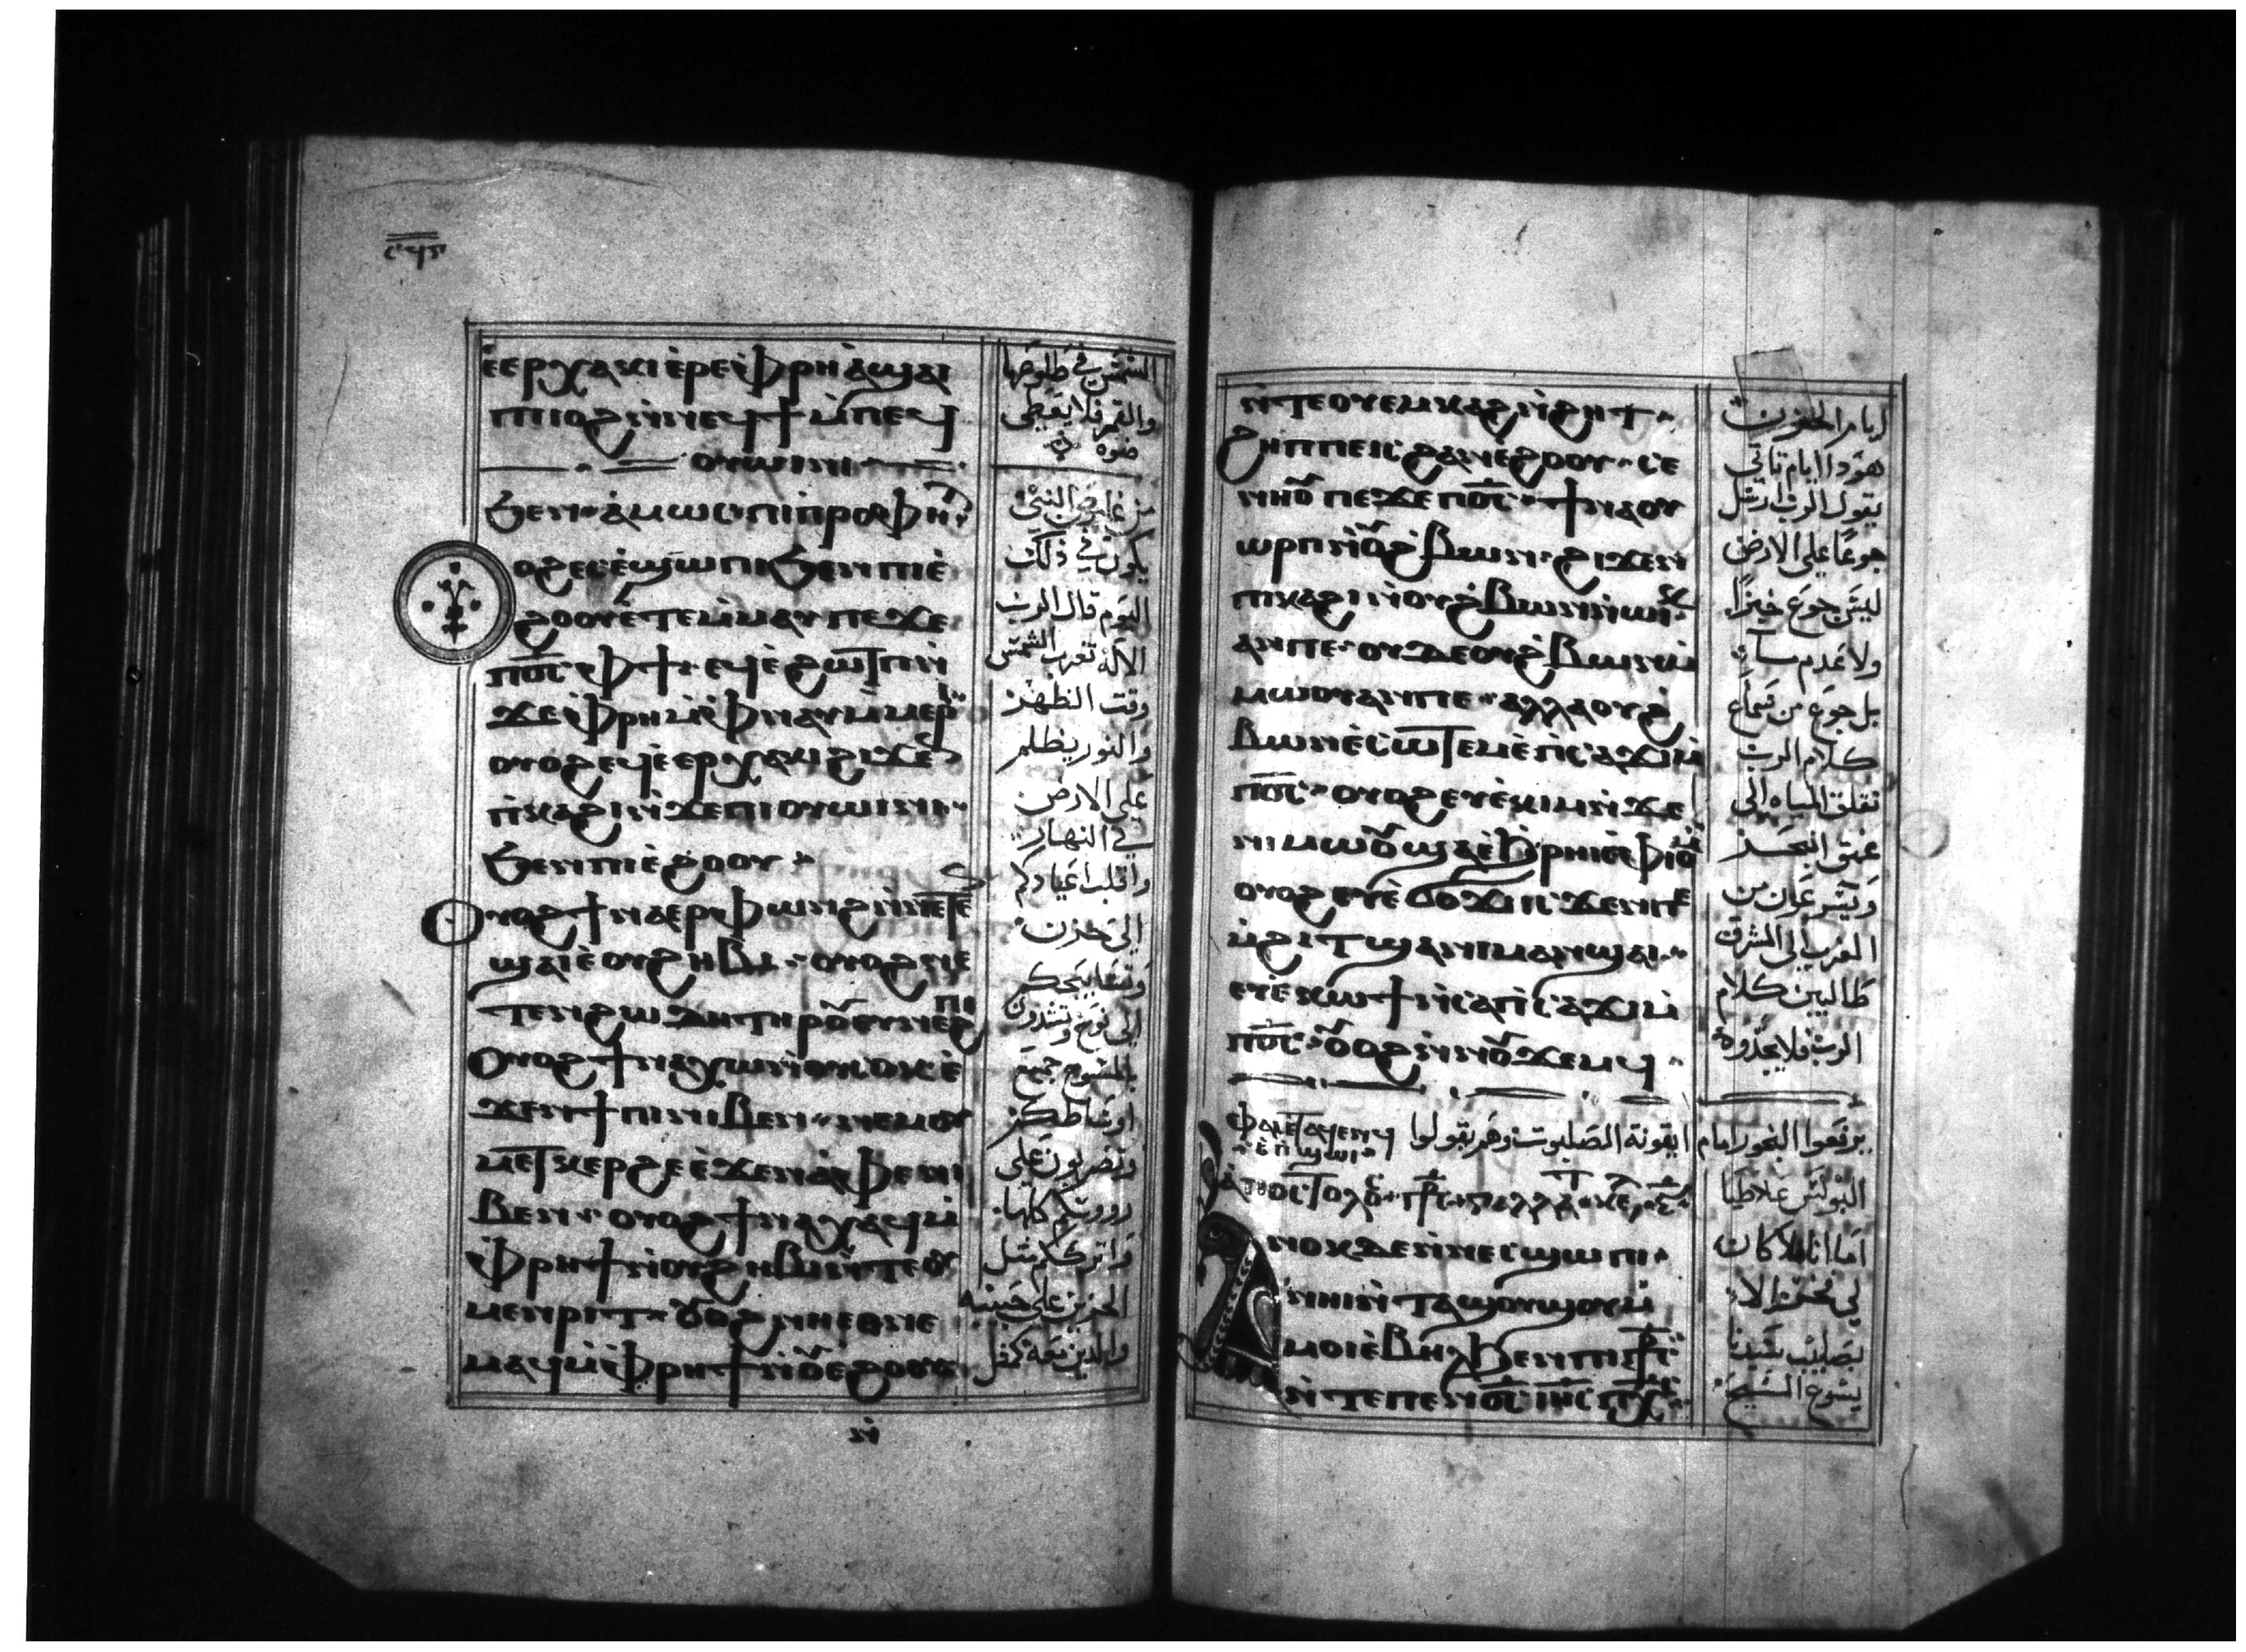 ⲉⲉⲣⲭⲁⲕⲓ ⲉⲣⲉ ⲫⲣⲏ ⲁϣⲁⲓ
ⲡⲓⲟϩ ⲛⲛⲉϥϯ ⲙⲡⲉϥ
ⲟⲩⲱⲓⲛⲓ
ϧⲉⲛ ⲁⲙⲱⲥ ⲡⲓⲡⲣⲟⲫⲏ
ⲟϩ ⲉⲥⲉϣⲱⲡⲓ ϧⲉⲛ ⲡⲓⲉ
ϩⲟⲟⲩ ⲉⲧⲉⲙⲙⲁⲩ ⲡⲉϫⲉ
ⲡⲟⲥ ⲫϯ ⲉϥⲉϩⲱⲧⲡ ⲛ
ϫⲉ ⲫⲣⲏ ⲙⲫⲛⲁⲩ ⲙⲙⲉⲣⲓ
ⲟⲩⲟϩ ⲉϥⲉⲉⲣⲭⲁⲕⲓ ϩⲓϫⲉⲛ
ⲡⲓⲕⲁϩⲓ ⲛϫⲉ ⲡⲓⲟⲩⲱⲓⲛⲓ
ϧⲉⲛ ⲡⲓⲉϩⲟⲟⲩ
ⲟⲩⲟϩ ϯⲛⲁⲉⲣⲫⲱⲛϩ ⲛⲛⲉⲧⲉⲛ
ϣⲁⲓ ⲉⲟⲩϩⲏⲃⲓ ⲟⲩⲟϩ ⲛⲉ
ⲧⲉⲛϩⲱⲇⲏ ⲧⲏⲣⲟⲩ ⲉⲩⲛⲉϩⲡⲓ
ⲟⲩⲟϩ ϯⲛⲁⲭⲱ ⲛⲟⲩⲥⲟⲕ ⲉ
ϫⲉⲛ ϯⲡⲓ ⲛⲓⲃⲉⲛ ⲛⲉⲙ ⲟⲩ
ⲙⲉⲧⲕⲉⲣϩⲉ ⲉϫⲉⲛ ⲁⲫⲉ ⲛⲓ
ⲃⲉⲛ ⲟⲩⲟϩ ϯⲛⲁⲭⲁϥ ⲙ
ⲫⲣⲏϯ ⲛⲟⲩϩⲏⲃⲓ ⲛⲧⲉ ⲟⲩ
ⲙⲉⲛⲣⲓⲧ ⲟⲩⲟϩ ⲛⲏⲉⲑⲛⲉ
ⲙⲁϥ ⲙⲫⲣⲏϯ ⲛⲟⲩⲉϩⲟⲟⲩ
الشمس في طلوعها
والقمر فلا يعطى
ضوه
من عاموص النبى
يكون في ذلك
اليوم قال الرب
الاله تغرب الشمس
وقت الظهر
والنور يظلم
على الارض
في النهار
واقلب اعيادكم
الى حزن
الى نوح
بالمسوح جميع
على
رووسكم كلها
واتركهم مثل
الحزين على حبيبه
والذين معه كمثل
ⲛⲧⲉ ⲟⲩⲉⲙⲕⲁϩ ⲛϩⲏⲧ
ϩⲏⲡⲡⲉ ⲓⲥ ϩⲁⲛⲉϩⲟⲟⲩ ⲥⲉ
ⲛⲏⲟⲩ ⲡⲉϫⲉ ⲡⲟⲥ ϯⲛⲁⲟⲩ
ⲱⲣⲡ ⲛⲟⲩϩⲃⲱⲛ ϩⲓϫⲉⲛ
ⲡⲓⲕⲁϩⲓ ⲛⲟⲩϩⲃⲱⲛ ⲛⲱⲓⲕ
ⲁⲛ ⲡⲉ ⲟⲩⲇⲉ ⲟⲩϩⲃⲱⲛ ⲙ
ⲙⲱⲟⲩ ⲁⲛ ⲡⲉ ⲁⲗⲗⲁ ⲟⲩϩ
ⲃⲱⲛ ⲉⲥⲱⲧⲉⲙ ⲉⲡⲥⲁϫⲓ ⲙ
ⲡⲟⲥ ⲟⲩⲟϩ ⲉⲩⲉⲕⲓⲙ ⲛϫⲉ
ⲛⲓⲙⲱⲟⲩ ϣⲁ ⲉϧⲣⲏⲓ ⲉⲫⲓⲟⲙ
ⲟⲩⲟϩ ⲉⲩⲉϭⲟϫⲓ ⲓⲥϫⲉⲛ ⲡⲉ
ⲙϩⲓⲧ ϣⲁ ⲛⲓⲙⲁⲛϣⲁⲓ
ⲉⲩⲉⲕⲱϯ ⲛⲥⲁ ⲡⲥⲁϫⲓ ⲙ
ⲡⲟⲥ ⲟⲩⲟϩ ⲛⲛⲟⲩϫⲉⲙϥ
ايام الحزن
هوذا ايام تاتي
يقول الرب ارسل
جوعا على الارض
ليس جوع خبزا
ولا عدم ماء
بل جوع من سماع
كلام الرب
تقلق المياه الى
عمق البحر
من
المغرب الى المشرق
طالبين كلام
الرب فلا يجدوه
يرفعوا البخور امام ايقونة الصلبوت وهم يقولوا
ⲫⲁⲓ ⲉⲧⲁϥⲉⲛϥ
ⲉⲡϣⲱⲓ
البولس غلاطيا
ⲁⲛⲟⲕ ⲇⲉ ⲛⲛⲉⲥϣⲱⲡⲓ
ⲛⲏⲓ ⲛⲧⲁϣⲟⲩϣⲟⲩ ⲙ
ⲙⲟⲓ ⲉⲃⲏⲗ ϧⲉⲛ ⲡⲓⲥⲧⲥ
ⲛⲧⲉ ⲡⲉⲛⲟⲥ ⲓⲏⲥ ⲡⲭⲥ
اما انا فلا كان
لي فخر الا
بصليب سيدنا
يسوع المسيح